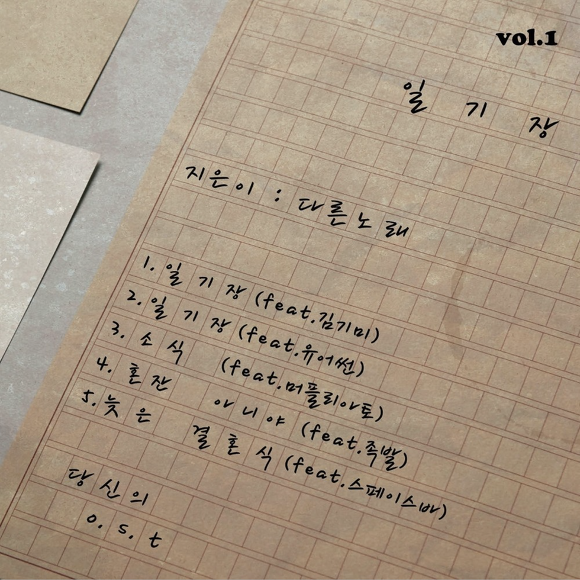 vol.1
일 기 장
지은이 : 다른노래
1. 일 기 장 (feat.김기미)
2. 일 기 장 (feat.유어썬)
3. 소 식 (feat.머플리아토)
4. 혼 잔 아 니 야 (feat.족발)
5. 늦 은 결 혼 식 (feat.스페이스바)
당신의
o. s. t